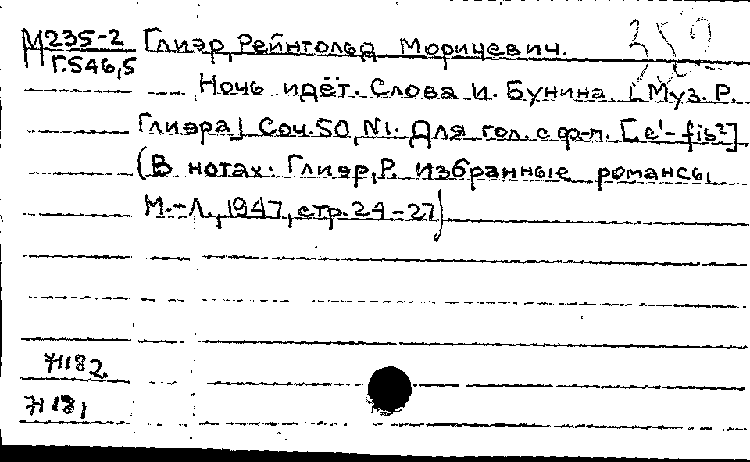 М 235-2 Глиэр, Рейнгольд Морицевич.
Г.546,5
Ночь идёт. Слова И. Бунина. [Муз. Р.
Глиэра] Соч. 50, N1. Для гол. с ф-п. [e'-fis²]
(В нотах: Глиэр, Р. Избранные романсы
М.-Л., 1947, стр. 24-27)
71182.
71181